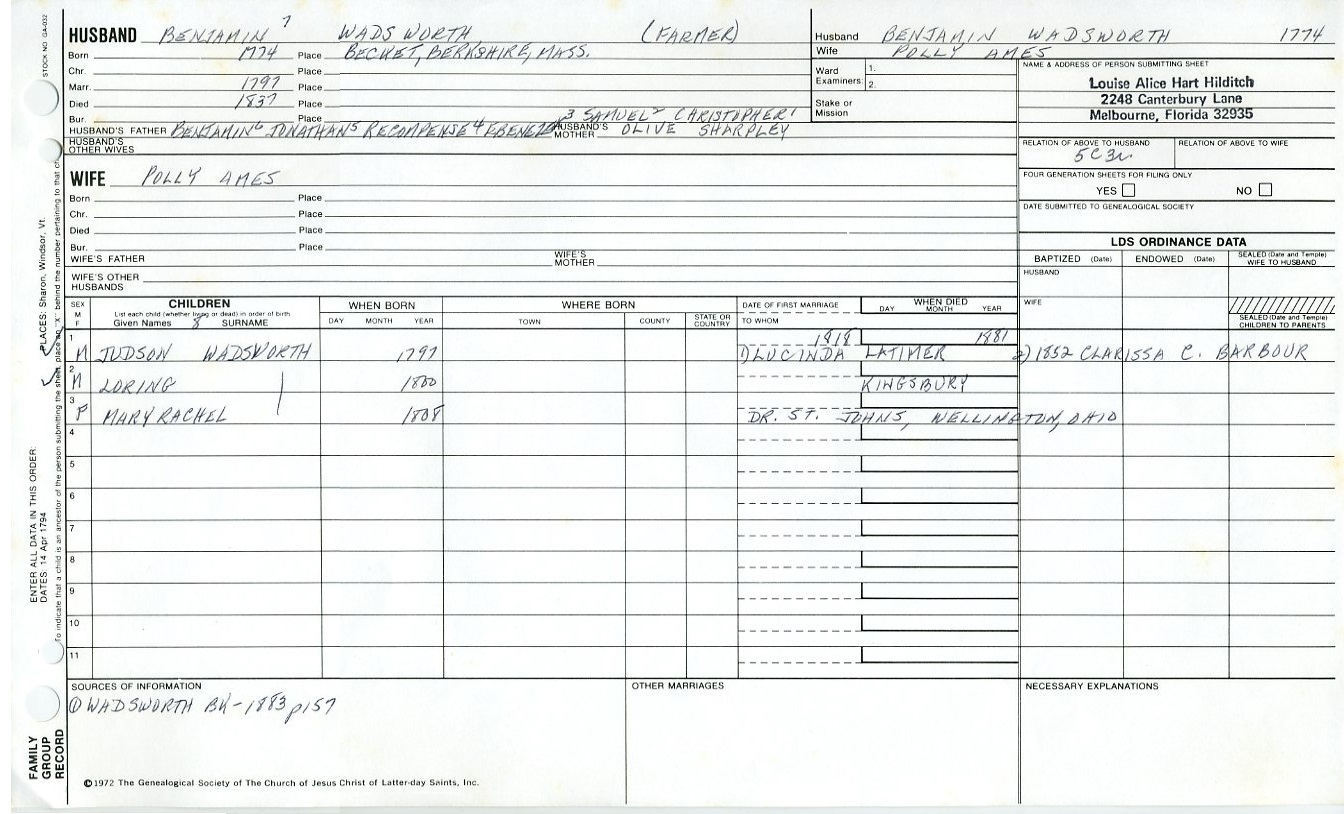 STOCK NO. GA-032
HUSBAND BENJAMIN 7 WADSWORTH (FARMER)
Born 1774 Place BECKET, BERKSHIRE, MASS.
Chr. Place
Marr. 1797 Place
Died 1837 Place
Bur. Place
HUSBAND'S FATHER BENJAMIN 6 JONATHAN 5 RECOMPENSE 4 EBENEZER 3 SAMUEL 2 CHRISTOPHER 1
HUSBAND'S MOTHER OLIVE SHARPLEY
HUSBAND'S OTHER WIVES
Husband BENJAMIN WADSWORTH 1774
Wife POLLY AMES
Ward Examiners: 1.
2.
Stake or Mission
NAME & ADDRESS OF PERSON SUBMITTING SHEET
Louise Alice Hart Hilditch
2248 Canterbury Lane
Melbourne, Florida 32935
RELATION OF ABOVE TO HUSBAND RELATION OF ABOVE TO WIFE
5C3r
FOUR GENERATION SHEETS FOR FILING ONLY
YES NO
DATE SUBMITTED TO GENEALOGICAL SOCIETY
WIFE POLLY AMES
Born Place
Chr. Place
Died Place
Bur. Place
WIFE'S FATHER WIFE'S MOTHER
WIFE'S OTHER HUSBANDS
LDS ORDINANCE DATA
BAPTIZED (Date) ENDOWED (Date) SEALED (Date and Temple) WIFE TO HUSBAND
HUSBAND
WIFE
SEALED (Date and Temple) CHILDREN TO PARENTS
SEX M F
CHILDREN
List each child (whether living or dead) in order of birth
Given Names 8 SURNAME
WHEN BORN
DAY MONTH YEAR
WHERE BORN
TOWN COUNTY STATE OR COUNTRY
DATE OF FIRST MARRIAGE
TO WHOM
WHEN DIED
DAY MONTH YEAR
1 M JUDSON WADSWORTH 1797 1818 1881
1) LUCINDA LATIMER 2) 1852 CLARISSA C. BARBOUR
2 M LORING 1800 KINGSBURY
3 F MARY RACHEL 1808 DR. ST. JOHNS, WELLINGTON, OHIO
4
5
6
7
8
9
10
11
SOURCES OF INFORMATION
① WADSWORTH BK - 1883 p157
OTHER MARRIAGES
NECESSARY EXPLANATIONS
©1972 The Genealogical Society of The Church of Jesus Christ of Latter-day Saints, Inc.
FAMILY GROUP RECORD
ENTER ALL DATA IN THIS ORDER:
DATES: 14 Apr 1794
PLACES: Sharon, Windsor, Vt.
To indicate that a child is an ancestor of the person submitting the sheet, place an "X" behind the number pertaining to that